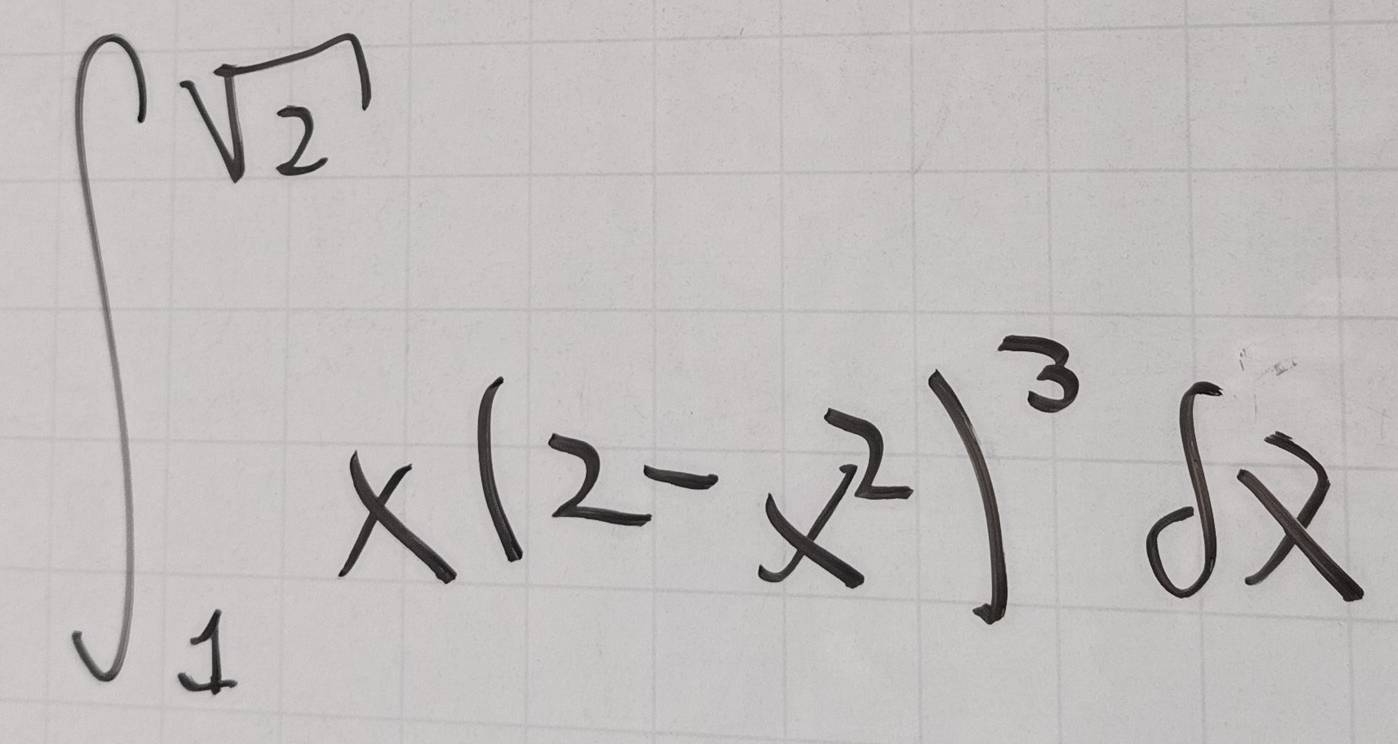 ∫₁^√2 x(2-x²)³ dx